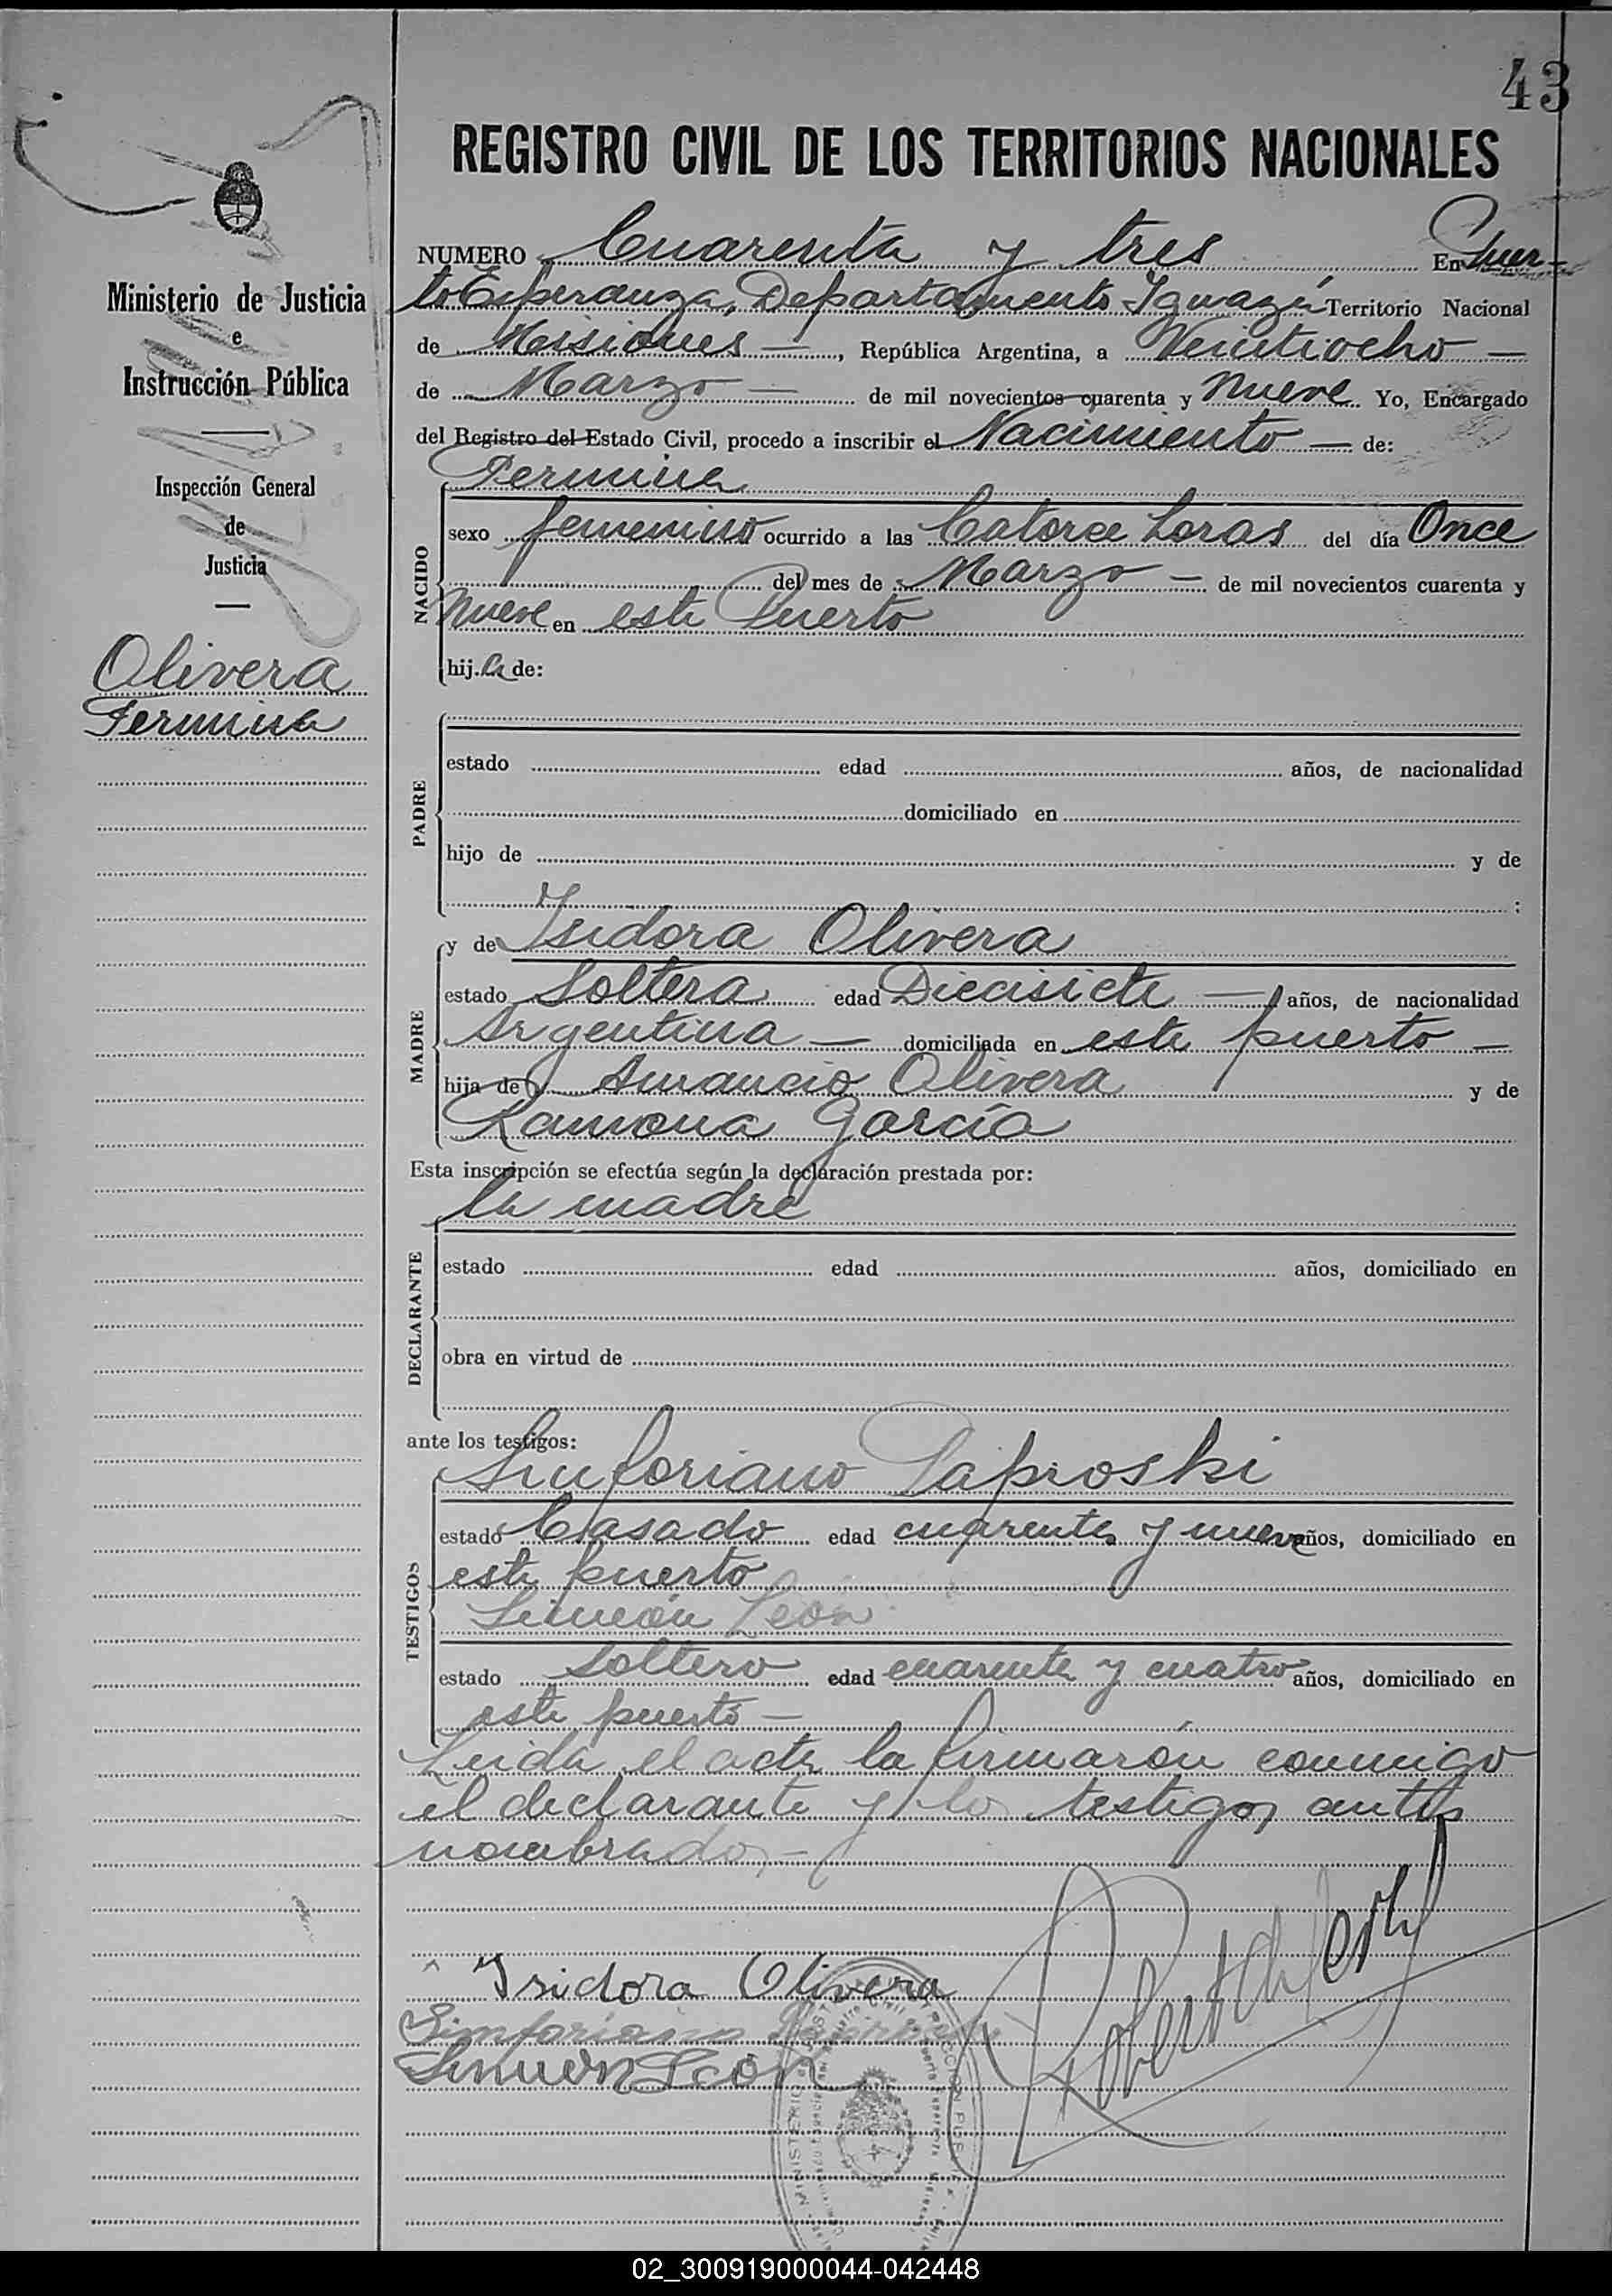 43
REGISTRO CIVIL DE LOS TERRITORIOS NACIONALES
Ministerio de Justicia
e
Instrucción Pública
Inspección General
de
Justicia
Olivera
Fermina
NUMERO Cuarenta y tres En Puer-
to Esperanza, Departamento Iguazú Territorio Nacional
de Misiones —, República Argentina, a Veintiocho —
de Marzo — de mil novecientos cuarenta y Nueve Yo, Encargado
del Registro del Estado Civil, procedo a inscribir el Nacimiento — de:
Fermina
NACIDO
sexo femenino ocurrido a las Catorce horas del día Once
del mes de Marzo — de mil novecientos cuarenta y
Nueve en este Puerto
hij.a de:
PADRE
estado edad años, de nacionalidad
domiciliado en
hijo de y de
;
MADRE
y de Isidora Olivera
estado Soltera edad Diecisiete — años, de nacionalidad
Argentina — domiciliada en este puerto —
hija de Amancio Olivera y de
Ramona García
Esta inscripción se efectúa según la declaración prestada por:
la madre
DECLARANTE
estado edad años, domiciliado en
obra en virtud de
ante los testigos:
Sinforiano Paproski
TESTIGOS
estado Casado edad cuarenta y nueve años, domiciliado en
este puerto
Simeón León
estado Soltero edad cuarenta y cuatro años, domiciliado en
este puerto —
Leida el acta la firmarón conmigo
el declarante y los testigos antes
nombrados,-
Isidora Olivera
Sinforiano
Simeon León
02_300919000044-042448